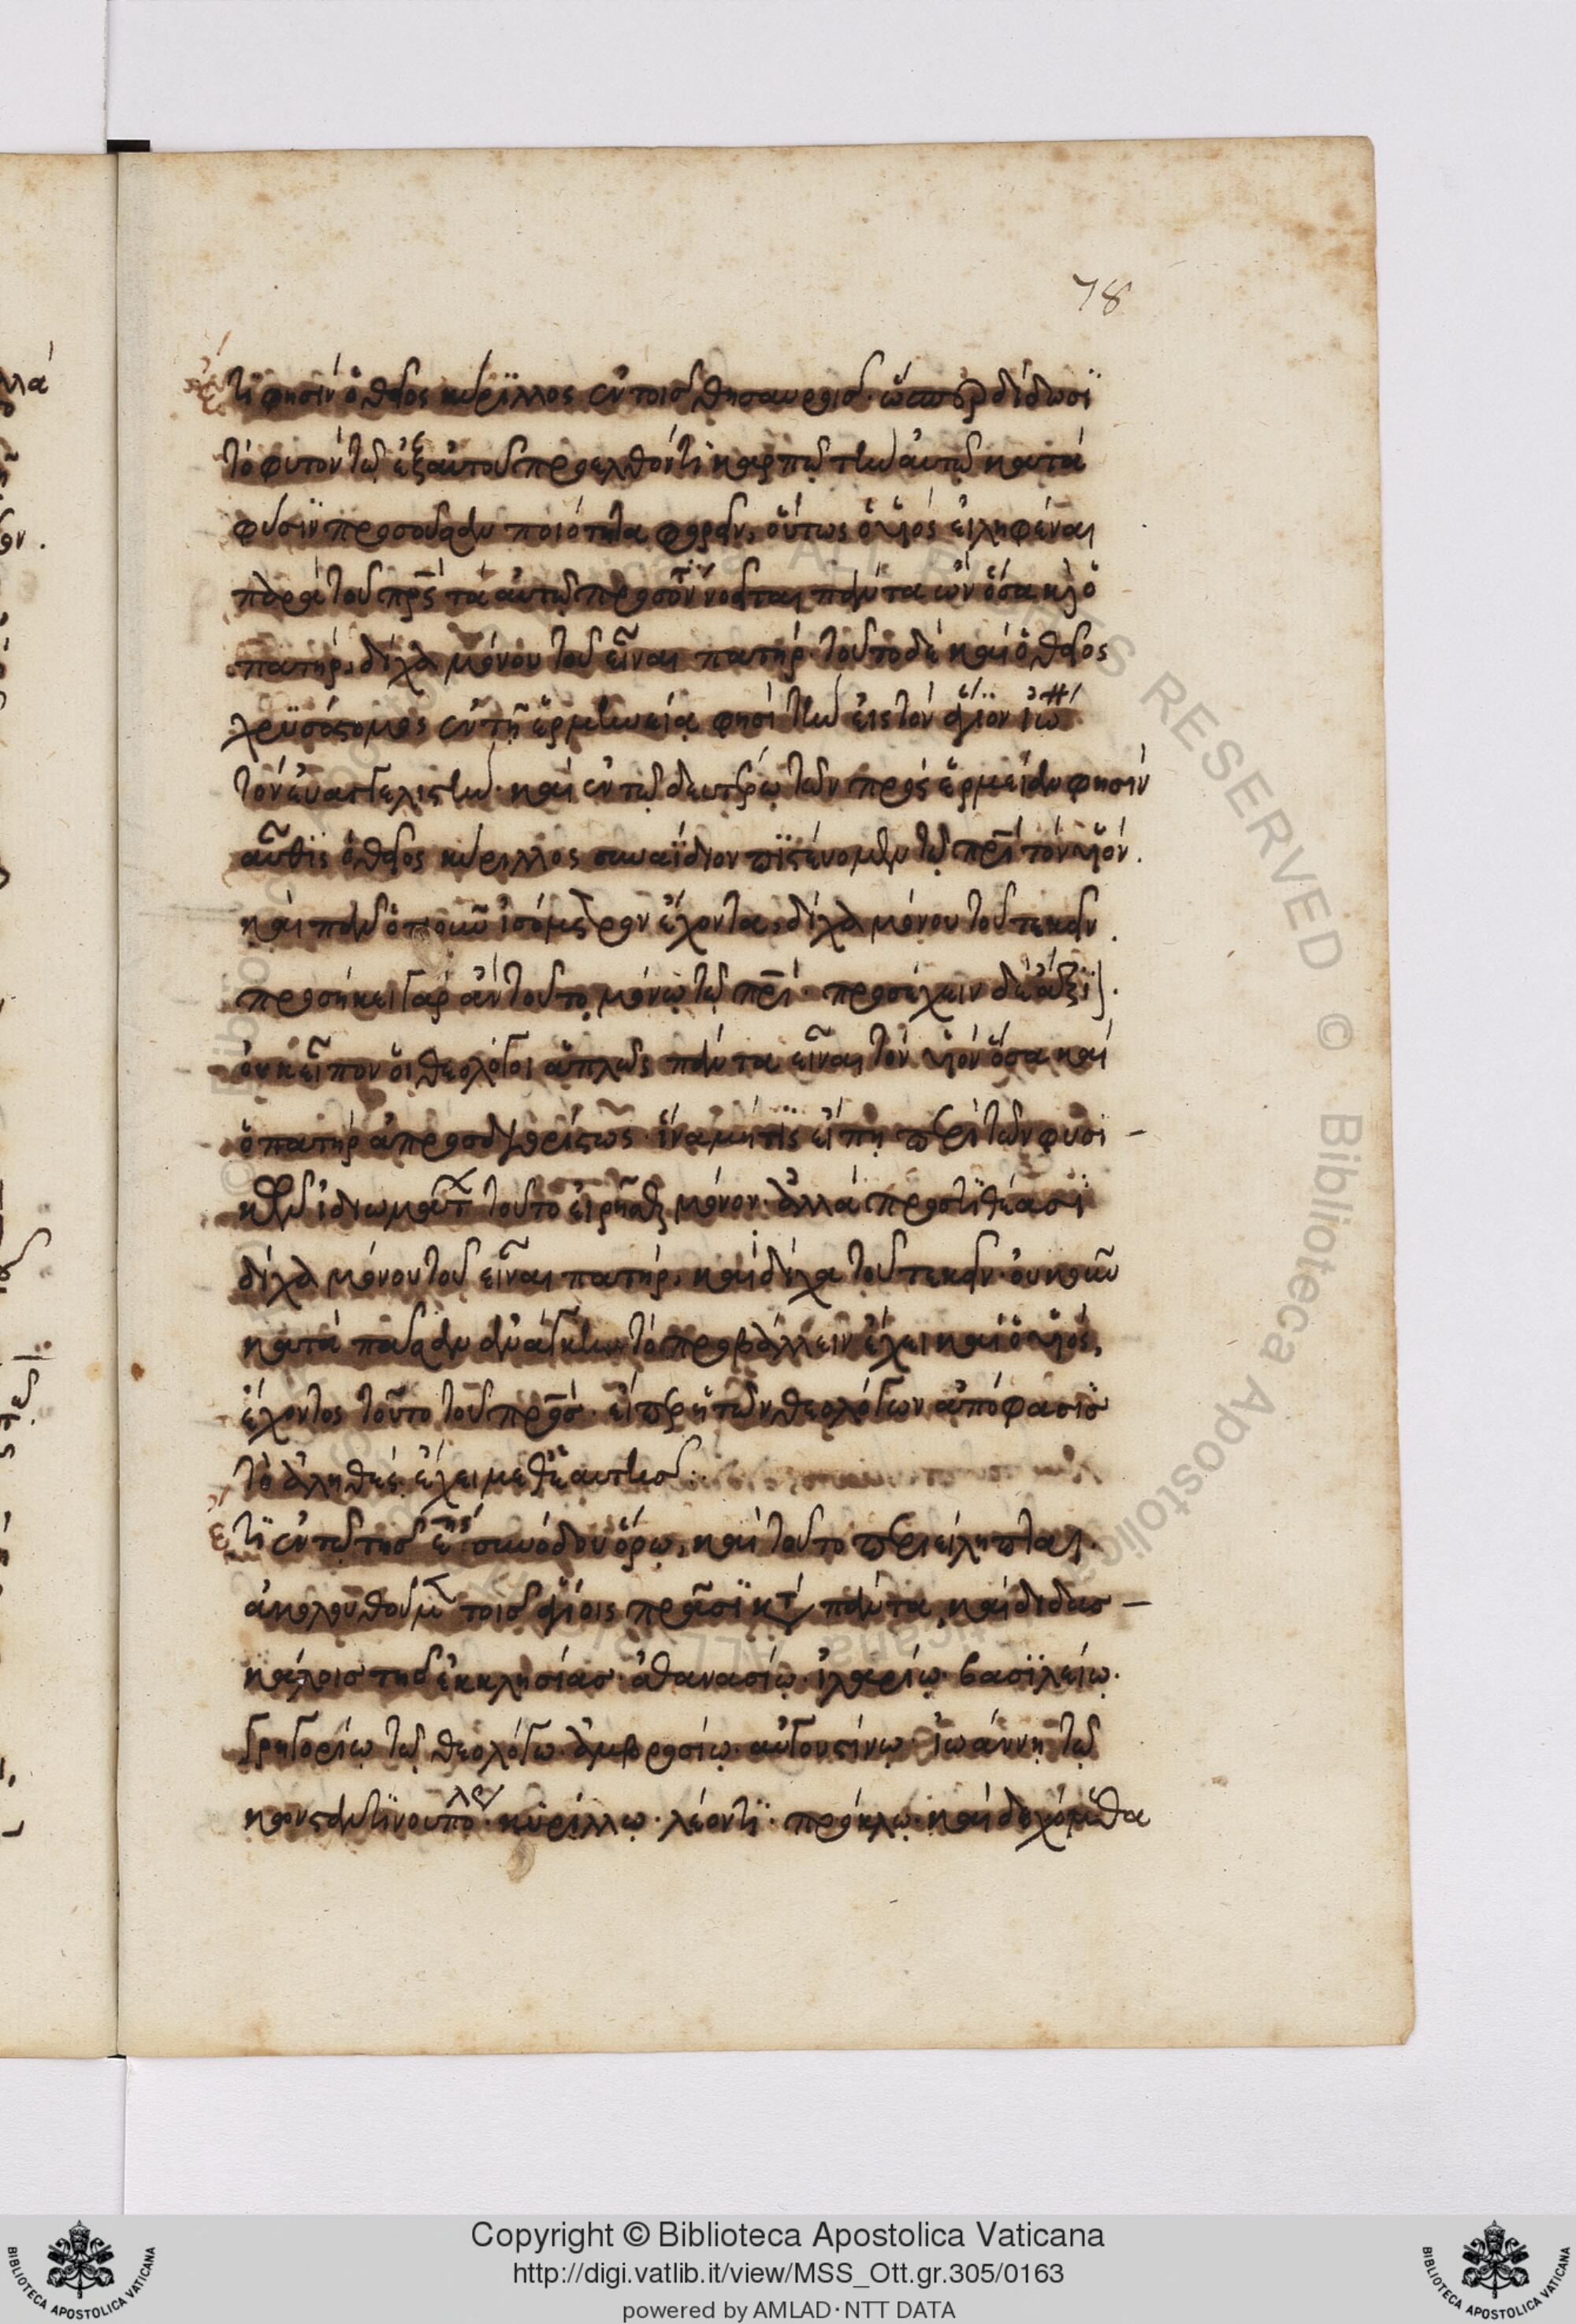 78
ἔτι φησὶν ὁ θεῖος κύριλλος ἐν τοῖς θησαυροῖς. ὥσπερ δίδωσι
τὸ φυτὸν τῷ ἐξ αὐτοῦ προελθόντι καρπῷ τὴν αὐτῷ κατὰ
φύσιν προσοῦσαν ποιότητα φορεῖν, οὕτως ὁ υἱὸς εἰληφέναι
παρὰ τοῦ πρς τὰ αὐτῷ προσόν νοεῖται πάντα ὢν ὅσα καὶ ὁ
πατήρ, δίχα μόνου τοῦ εἶναι πατήρ. τοῦτο δὲ καὶ ὁ θεῖος
χρυσόστομος ἐν τῇ ἑρμηνεία φησὶ τὴν εἰς τὸν ἅγιον ἰω
τὸν εὐαγγελιστὴν. καὶ ἐν τῷ δευτέρω τῶν πρὸς ἑρμείαν φησὶν
αὖθις ὁ θεῖος κύριλλος συναΐδιον πιστεύομεν τῷ πρι τὸν υἱόν.
καὶ πᾶν ὁτιοῦν ἰσόμετρον ἔχοντα, δίχα μόνου τοῦ τεκεῖν.
προσήκει γὰρ ἂν τοῦτο μόνῳ τῷ πρι. προσέχειν δὲ ἄξι].
οὐκ εἶπον οἱ θεολόγοι ἁπλῶς πάντα εἶναι τὸν υἱὸν ὅσα καὶ
ὁ πατὴρ ἀπροσδιορίστως. ἵνα μή τις εἴπη περὶ τῶν φυσι-
κῶν ἰδιωμάτ τοῦτο εἰρῆσθαι μόνον. ἀλλὰ προστιθέασι
δίχα μόνου τοῦ εἶναι πατήρ, καὶ δίχα τοῦ τεκεῖν. οὐκοῦν
κατὰ πᾶσαν ἀνάγκην τὸ προβάλλειν ἔχει καὶ ὁ υἱός,
ἔχοντος τοῦτο τοῦ πρς. εἴπερ ἡ τῶν θεολόγων ἀπόφασις
τὸ ἀληθὲς ἔχει μεθ' ἑαυτῆς.
ἔτι ἐν τῷ τῆς ε̄ης συνόδου ὅρω, καὶ τοῦτο περιείληπται.
ἀκολουθοῦμ τοῖς ἁγίοις πρᾶσι κτ πάντα, καὶ διδας-
κάλοις τῆς ἐκκλησίας. ἀθανασίῳ. ἱλαρίῳ. βασιλείῳ.
γρηγορίῳ τῷ θεολόγω. ἀμβροσίῳ. αὐγουστίνῳ. ἰωάννῃ τῷ
κωνσταντινουπόλε. κυρίλλῳ. λέοντι. πρόκλῳ. καὶ δεχόμεθα
Copyright © Biblioteca Apostolica Vaticana
http://digi.vatlib.it/view/MSS_Ott.gr.305/0163
powered by AMLAD·NTT DATA